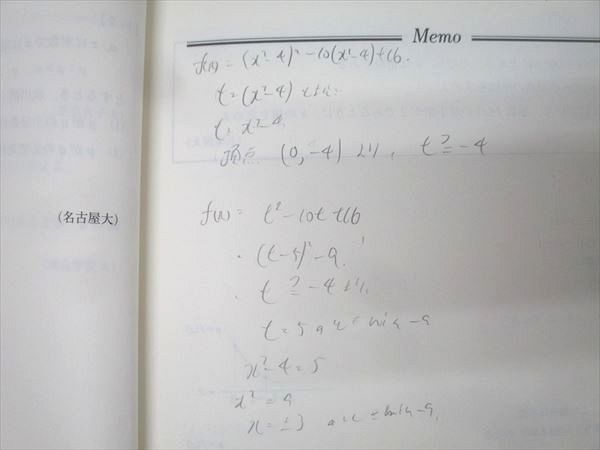 Memo
f(x) = (x²-4)² - 10(x²-4) + 16.
t = (x²-4) とすると
t = x²-4
頂点 (0, -4) より, t ≧ -4
(名古屋大)
f(x) = t² - 10t + 16
(t-5)² - 9
t ≧ -4 より
t = 5 のとき min -9
x²-4 = 5
x² = 9
x = ±3 のとき min -9